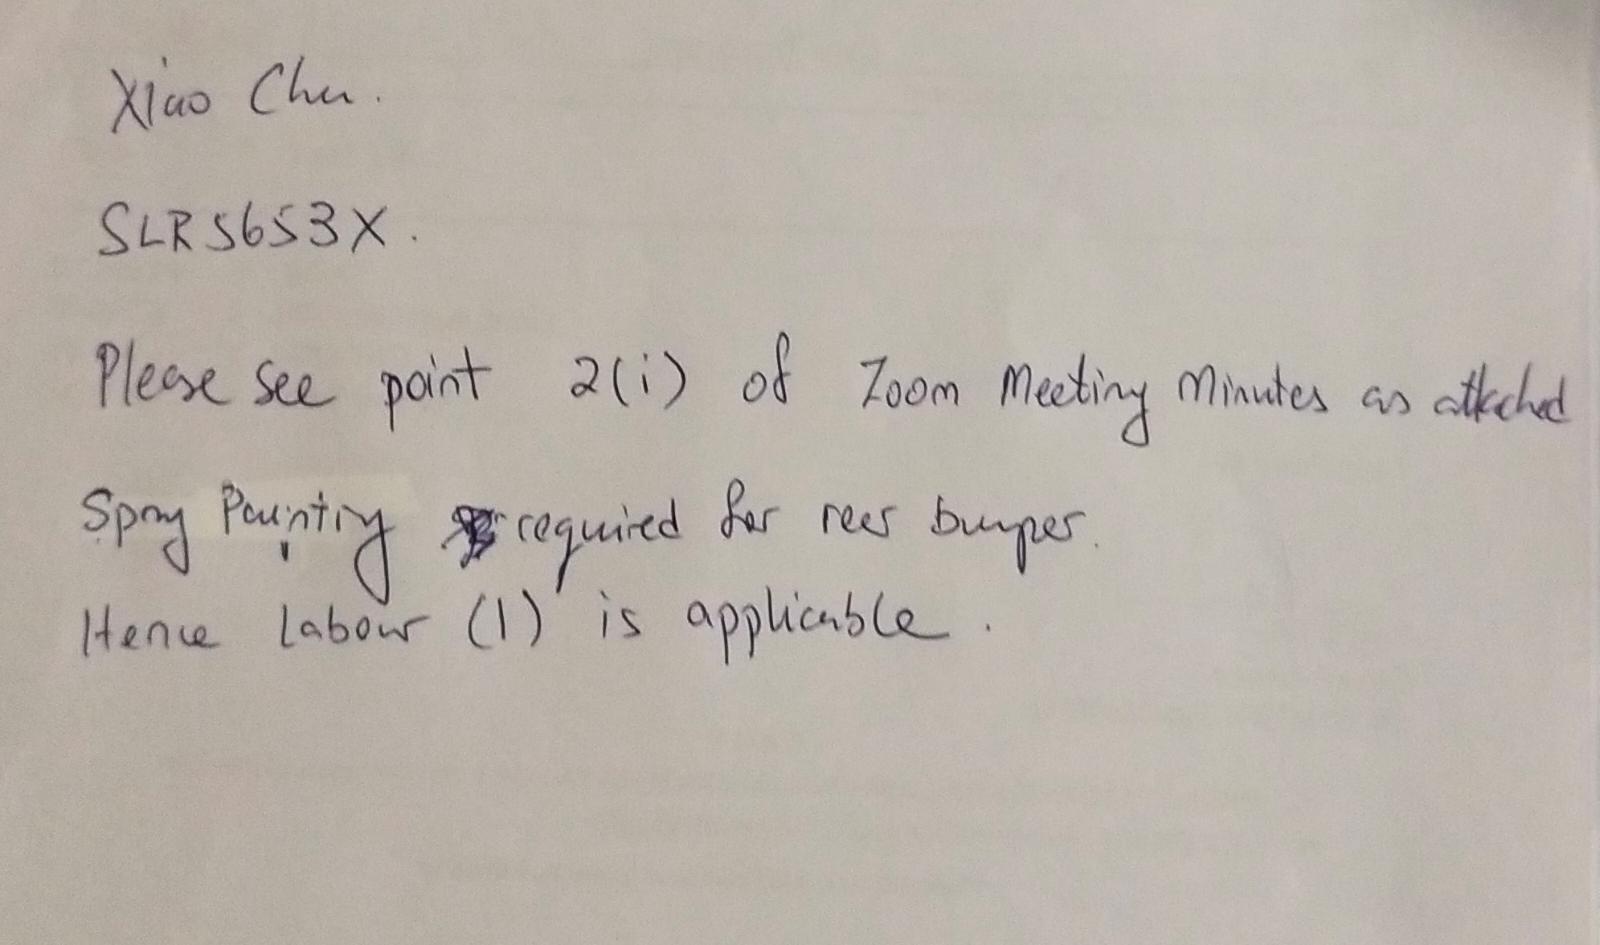 Xiao Chu.
SLR5653X.
Please see point 2(i) of Zoom Meeting Minutes as attached
Spray Painting required for rear bumper.
Hence Labour (1) is applicable.